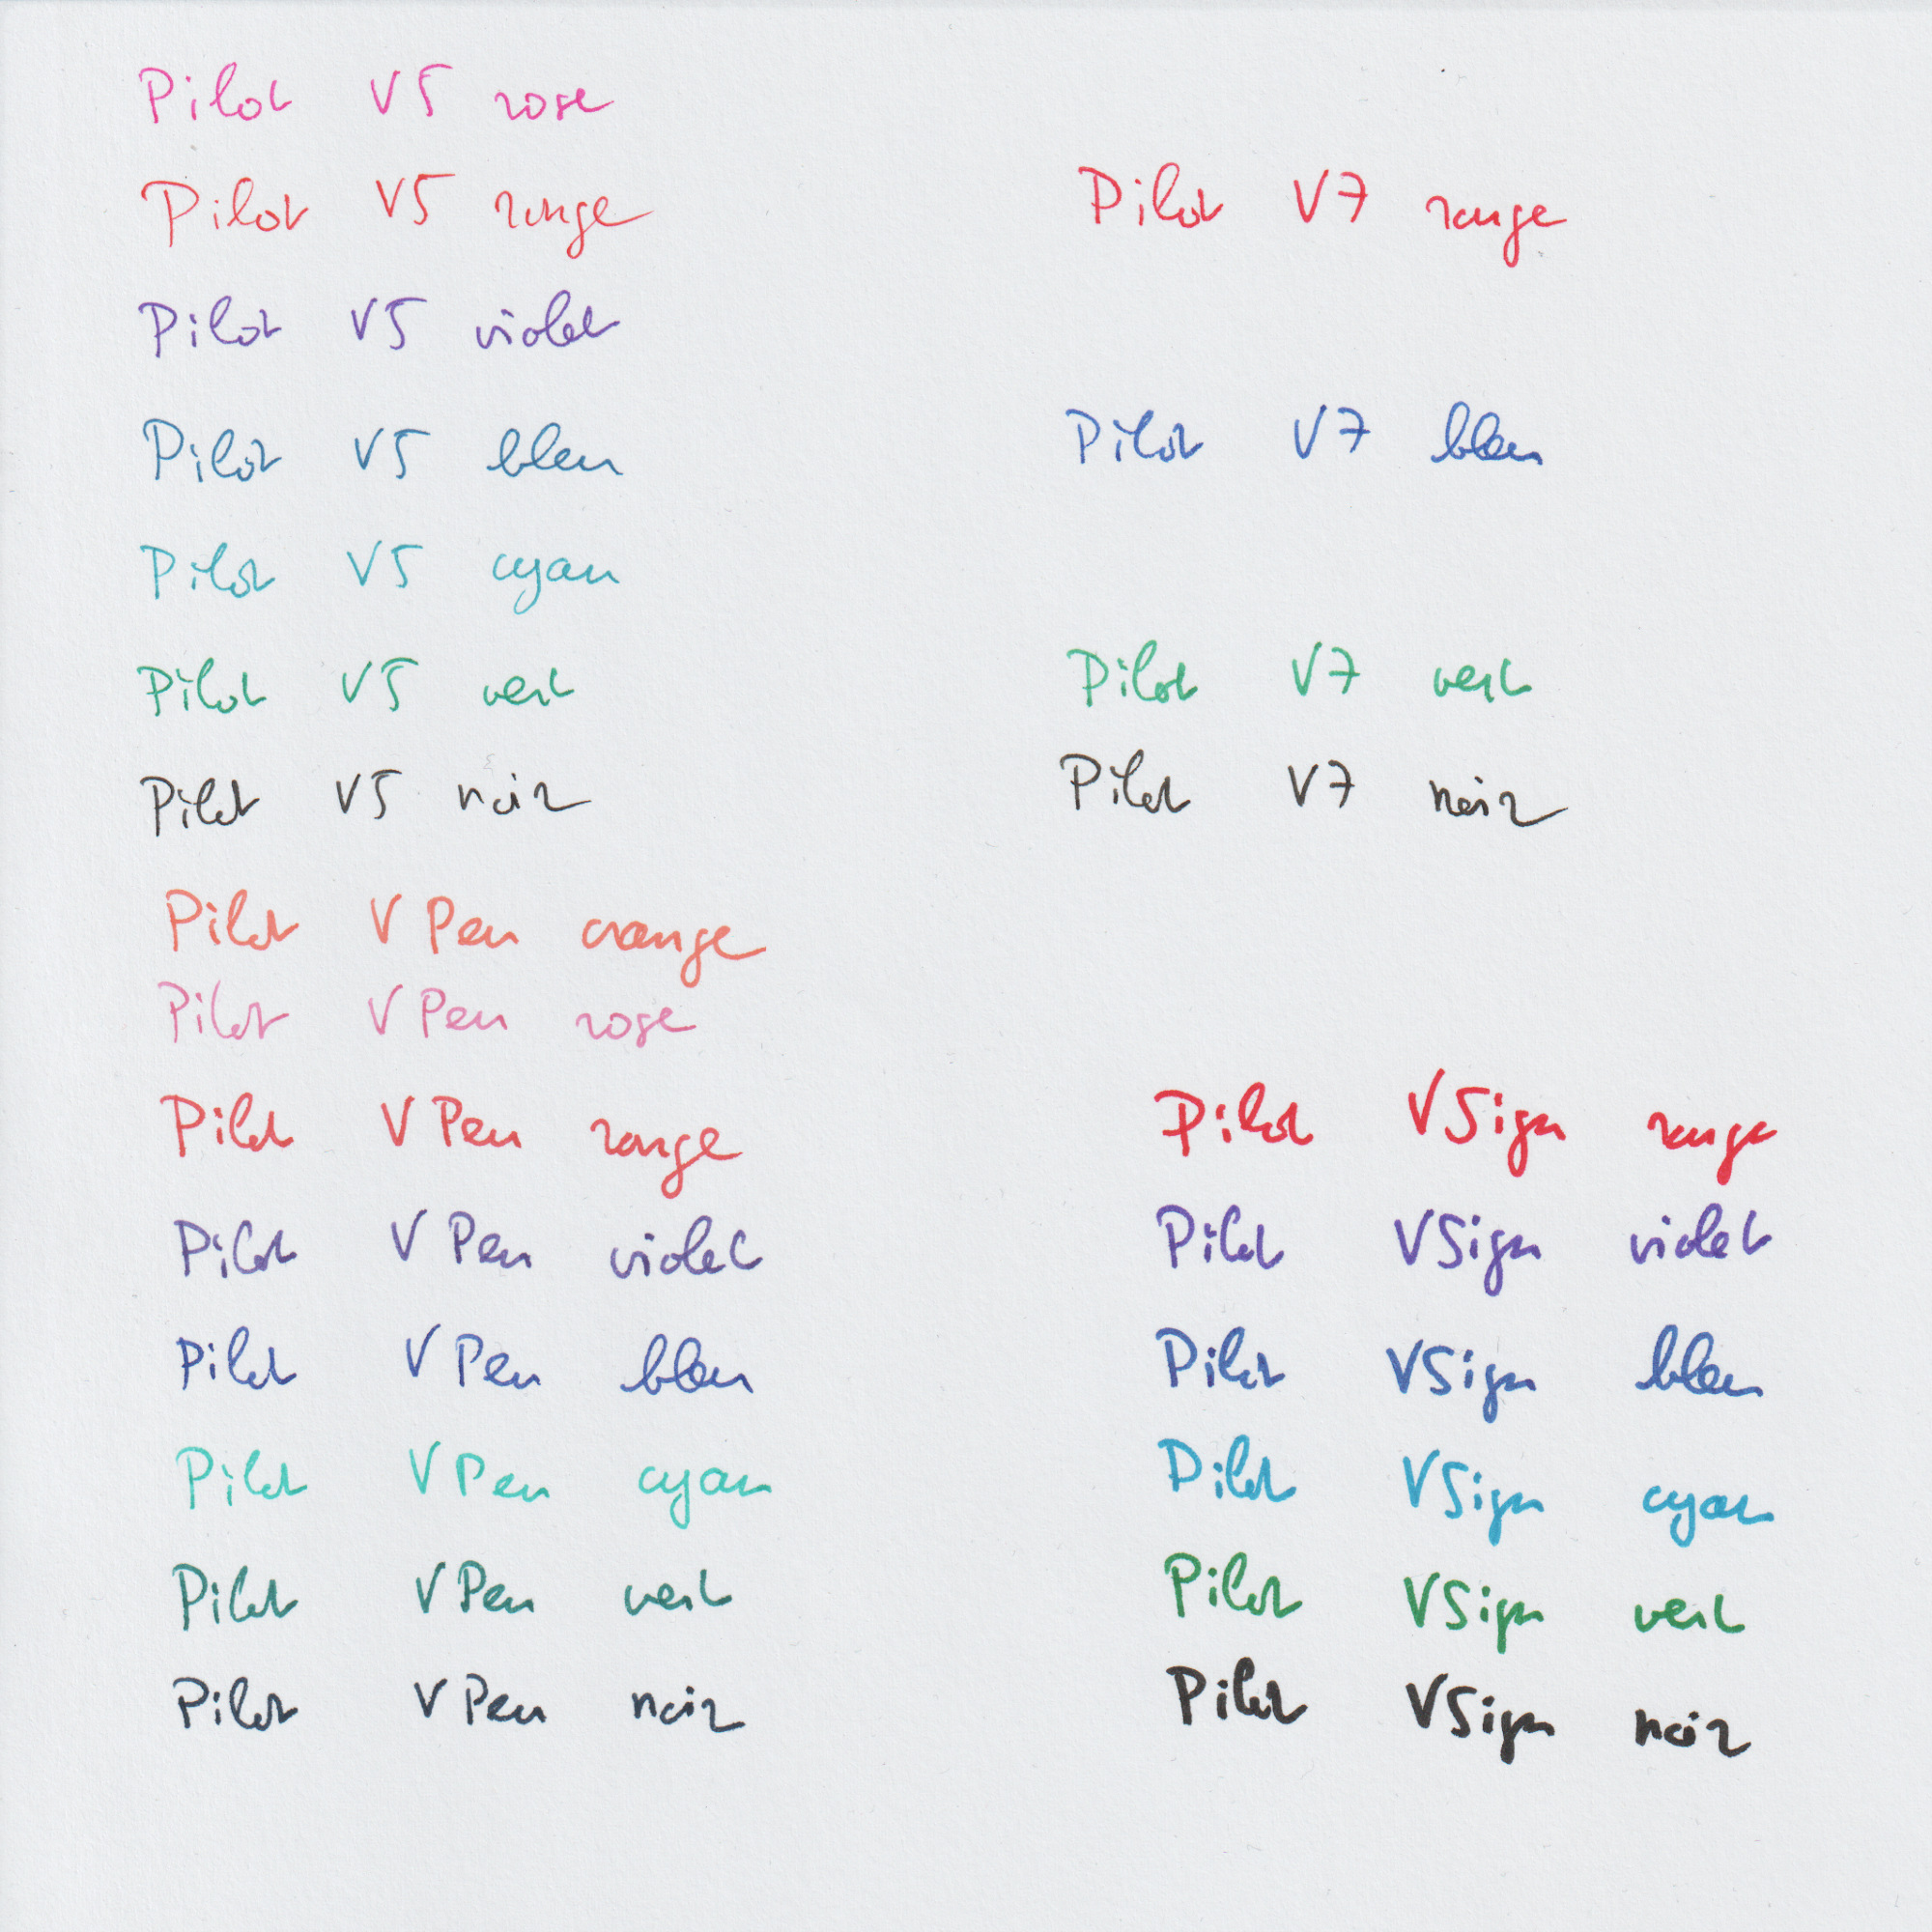 Pilot V5 rose
Pilot V5 rouge
Pilot V7 rouge
Pilot V5 violet
Pilot V5 bleu
Pilot V7 bleu
Pilot V5 cyan
Pilot V5 vert
Pilot V7 vert
Pilot V5 noir
Pilot V7 noir
Pilot V Pen orange
Pilot V Pen rose
Pilot V Pen rouge
Pilot VSign rouge
Pilot V Pen violet
Pilot VSign violet
Pilot V Pen bleu
Pilot VSign bleu
Pilot V Pen cyan
Pilot VSign cyan
Pilot V Pen vert
Pilot VSign vert
Pilot V Pen noir
Pilot VSign noir